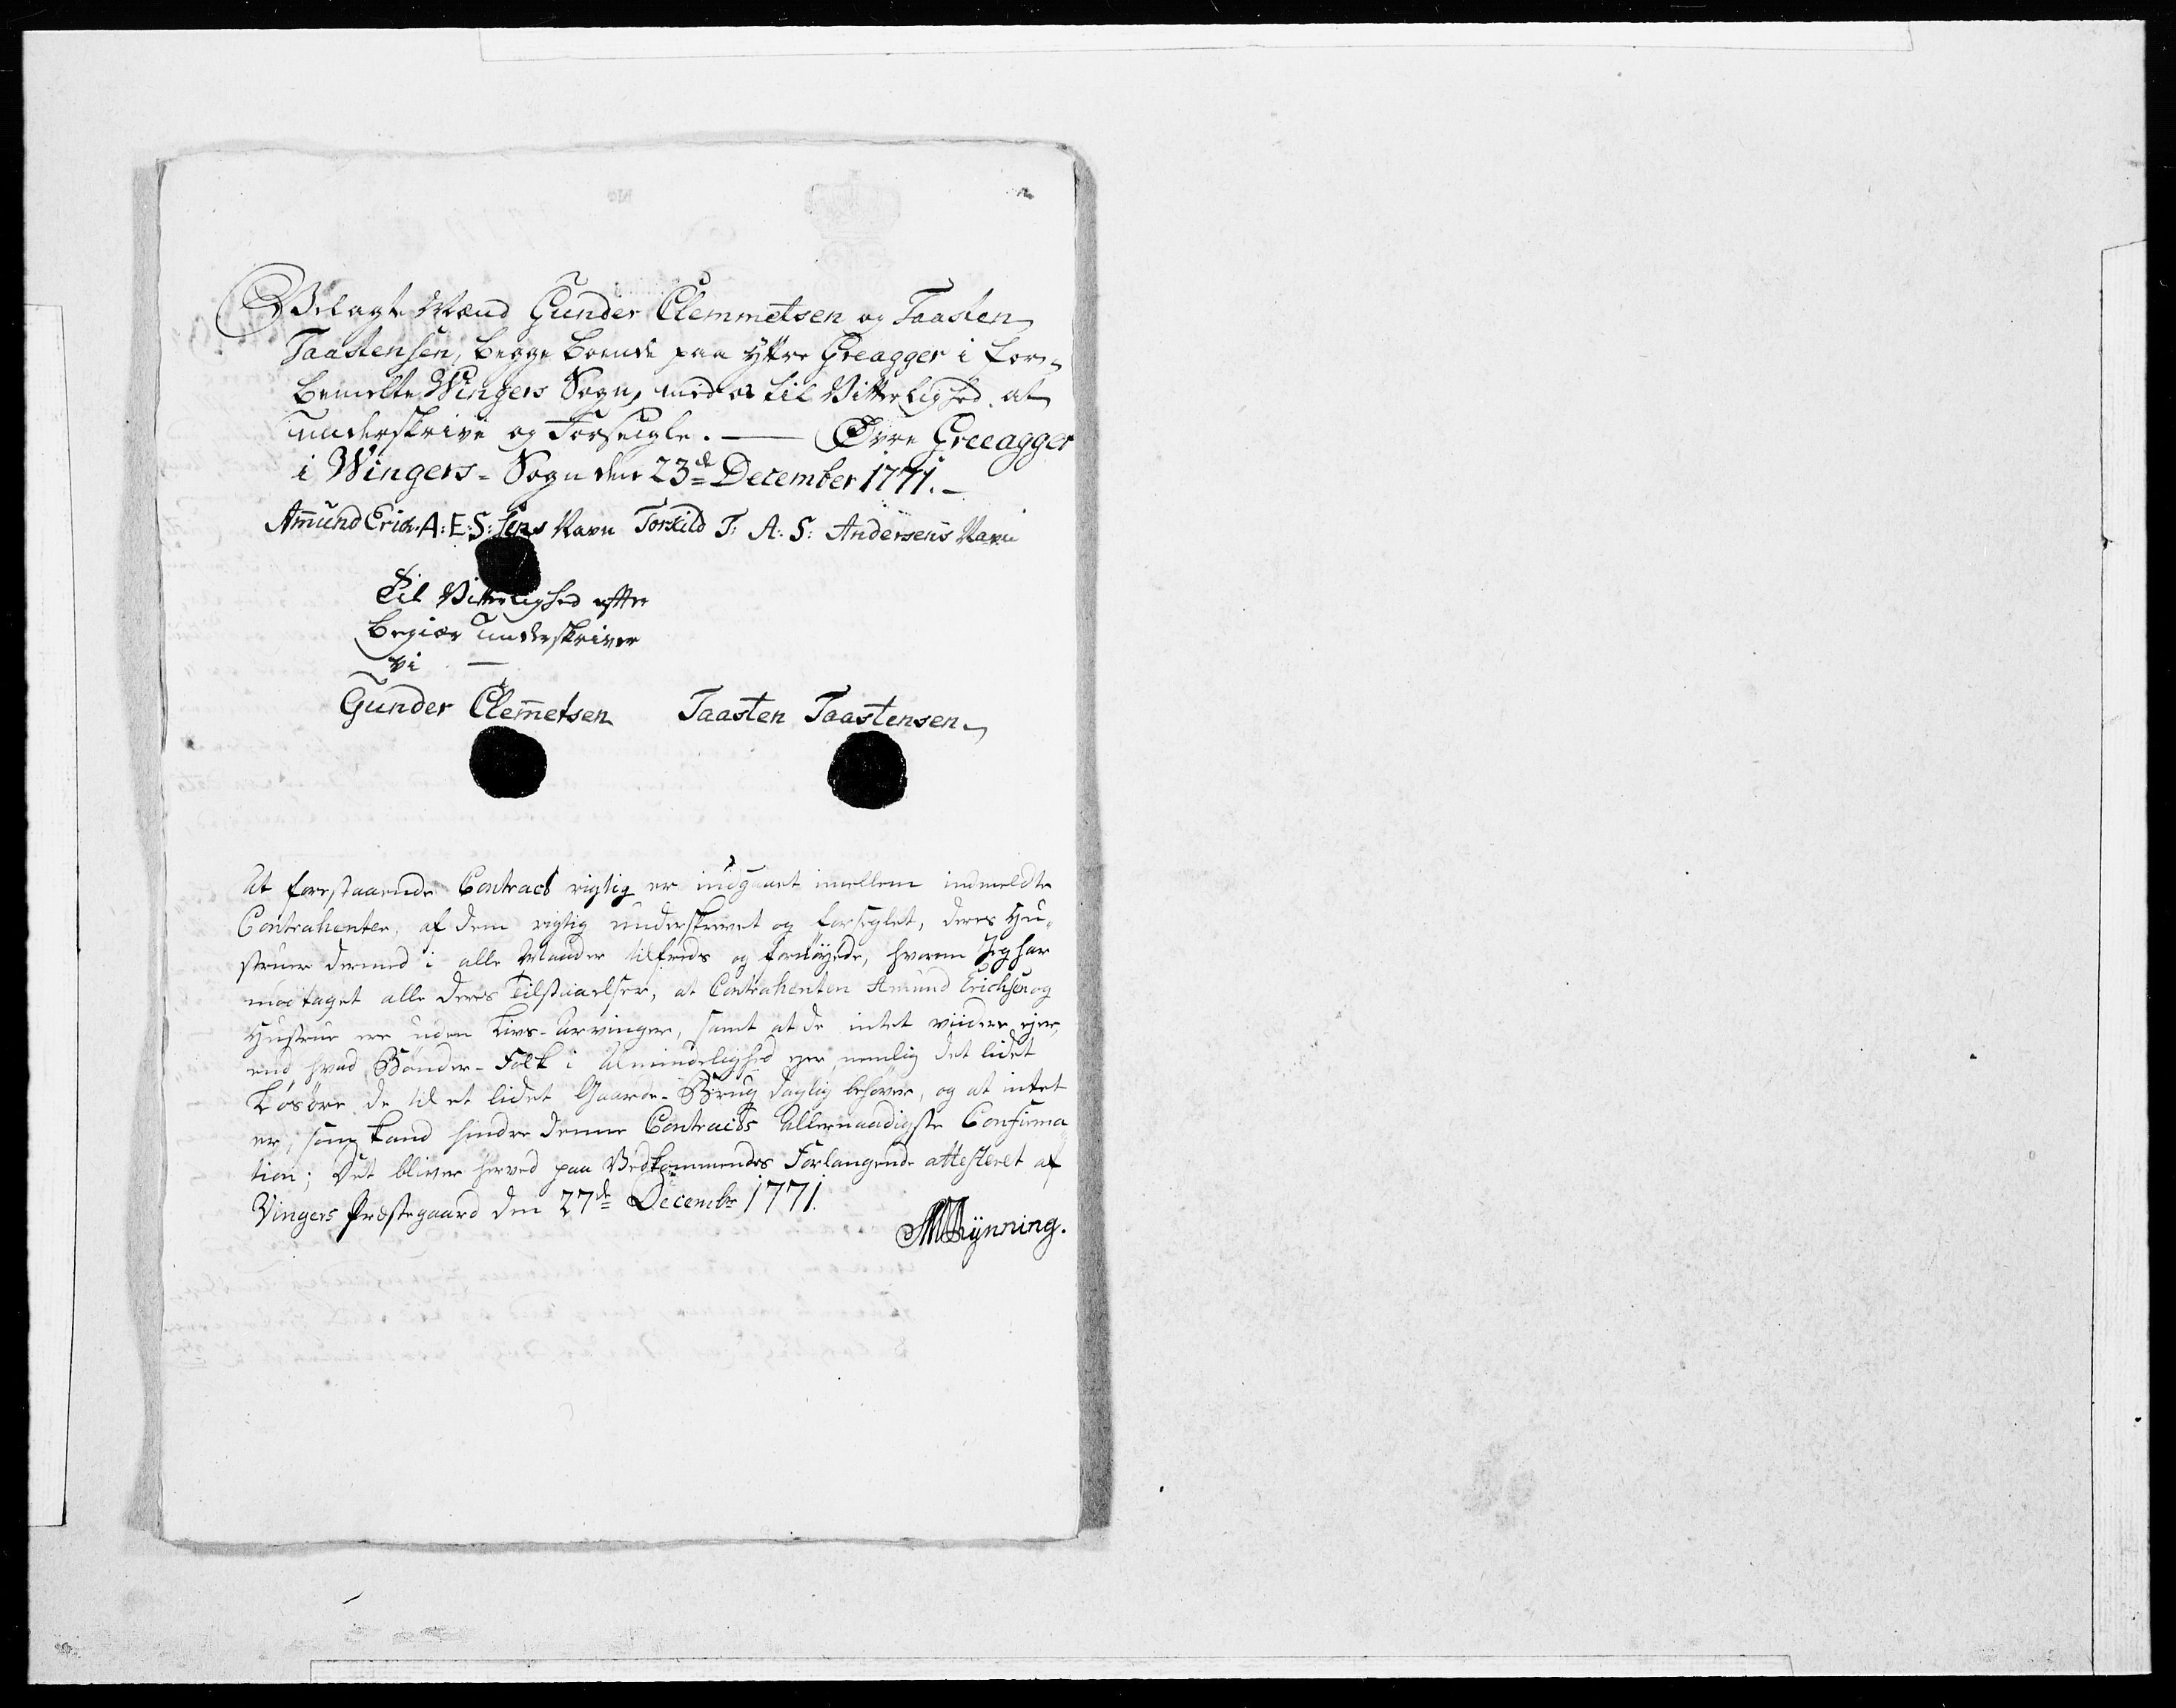 Velagte Mænd Gunder Clemmetsen og Taasten
Taastensen, begge boende paa Yttre Greagger i for-
bemelte Wingers Sogn, med os til Vitterlighed at
underskrive og Forseigle. — Øvre Greeagger
i Wingers-Sogn den 23de December 1771.
Amund Erich. A: E: S: sens Navn Torkild T: A: S: Andersens Navn
Til Vitterlighed efter
begiær underskriver
vi —
Gunder Clem̅etsen Taasten Taastensen
At forestaaende Contract rigtig er indgaaet imellem indmeldte
Contrahenter, af dem rigtig underskrevet og forseglet, deres Hu-
struer dermed i alle Maader tilfreds og fornøyede, hvorom Jeg har
modtaget alle deres Tilstaaelser, at Contrahenten Amund Erichsen og
Hustrue er uden Livs-Arvinger, samt at de intet viidere ejer,
end hvad Bønder-Folk i Almindelighed ejer, nemlig det lidet
Løsøre de til et lidet Gaards-Brug daglig behøver, og at intet
er, som kand hindre denne Contracts Allernaadigste Confirma
tion; Det bliver herved paa Vedkommendes Forlangende attesteret af
Vingers Præstegaard den 27de Decembr 1771.